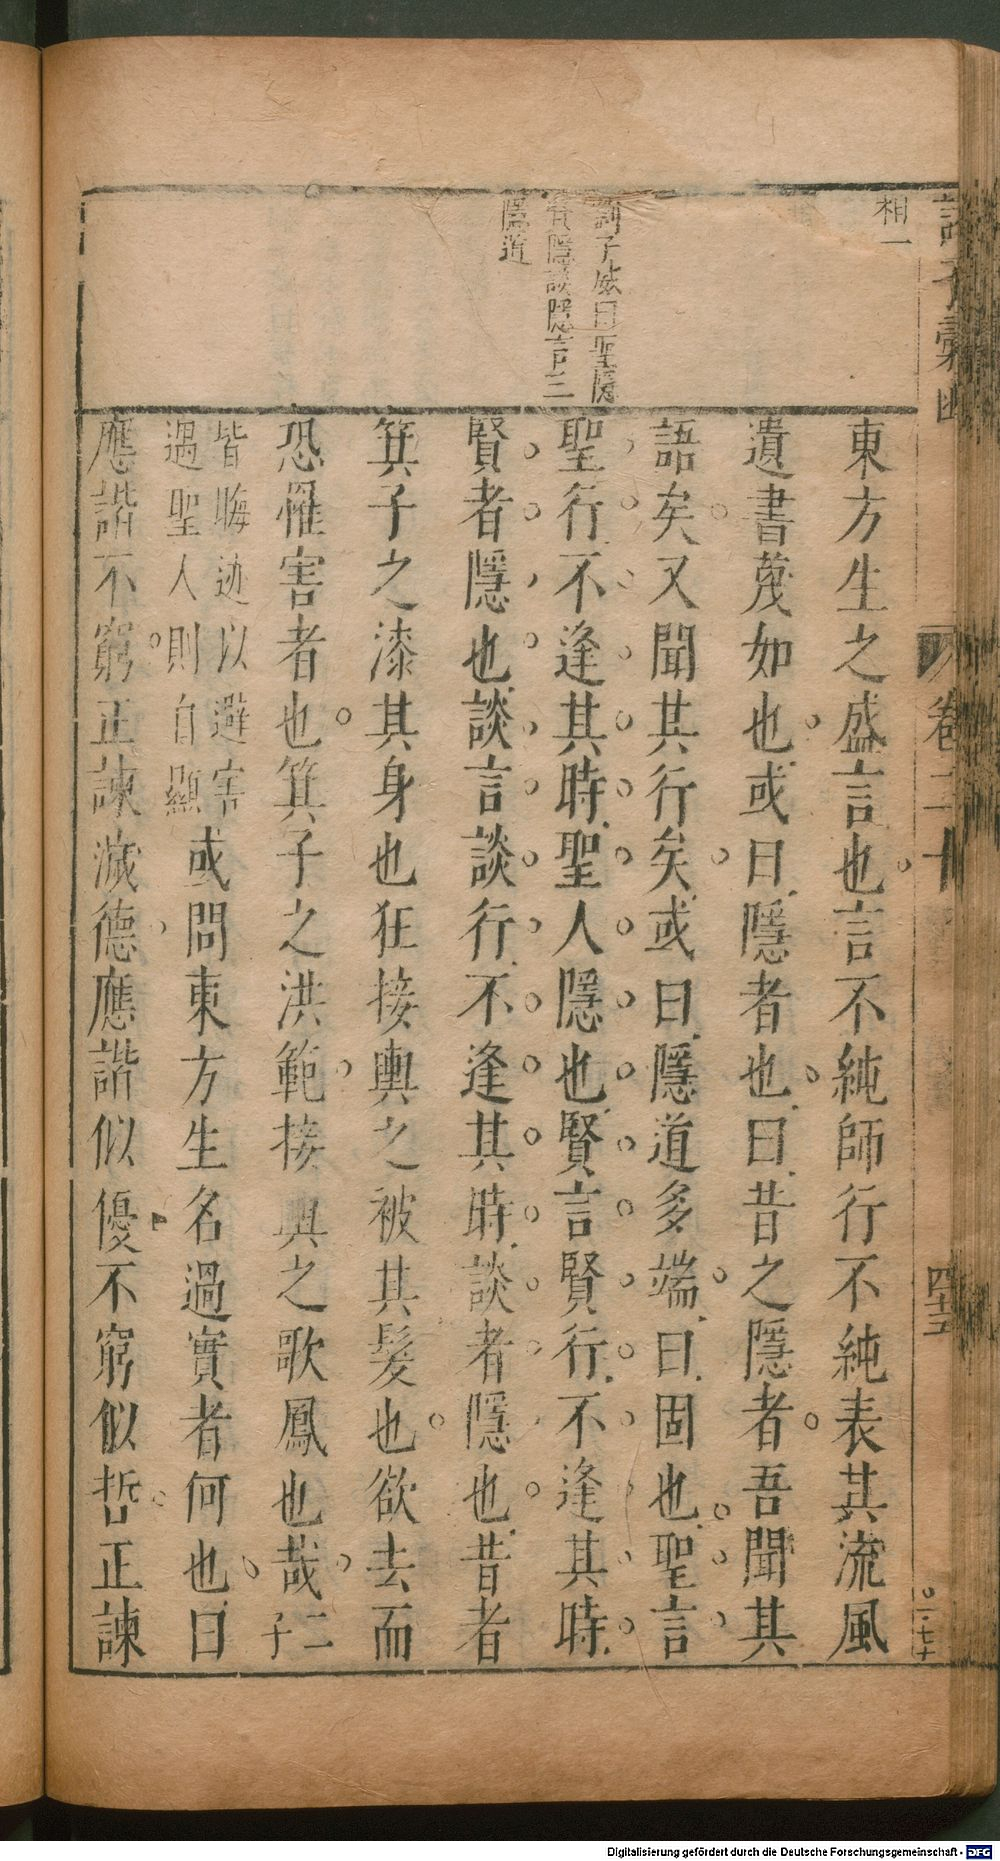 相一
劉子威曰聖隱
賢隱談隱言三
隱道
東方生之盛言也言不純師行不純表其流風
遺書蔑如也或曰隱者也曰昔之隱者吾聞其
語矣又聞其行矣或曰隱道多端曰固也聖言
聖行不逢其時聖人隱也賢言賢行不逢其時
賢者隱也談言談行不逢其時談者隱也昔者
箕子之漆其身也狂接輿之被其髮也欲去而
恐罹害者也箕子之洪範接輿之歌鳳也哉二子
皆晦迹以避害
遇聖人則自顯
或問東方生名過實者何也曰
應諧不窮正諫濊德應諧似優不窮似哲正諫
卷二
四十五
Digitalisierung gefördert durch die Deutsche Forschungsgemeinschaft - DFG